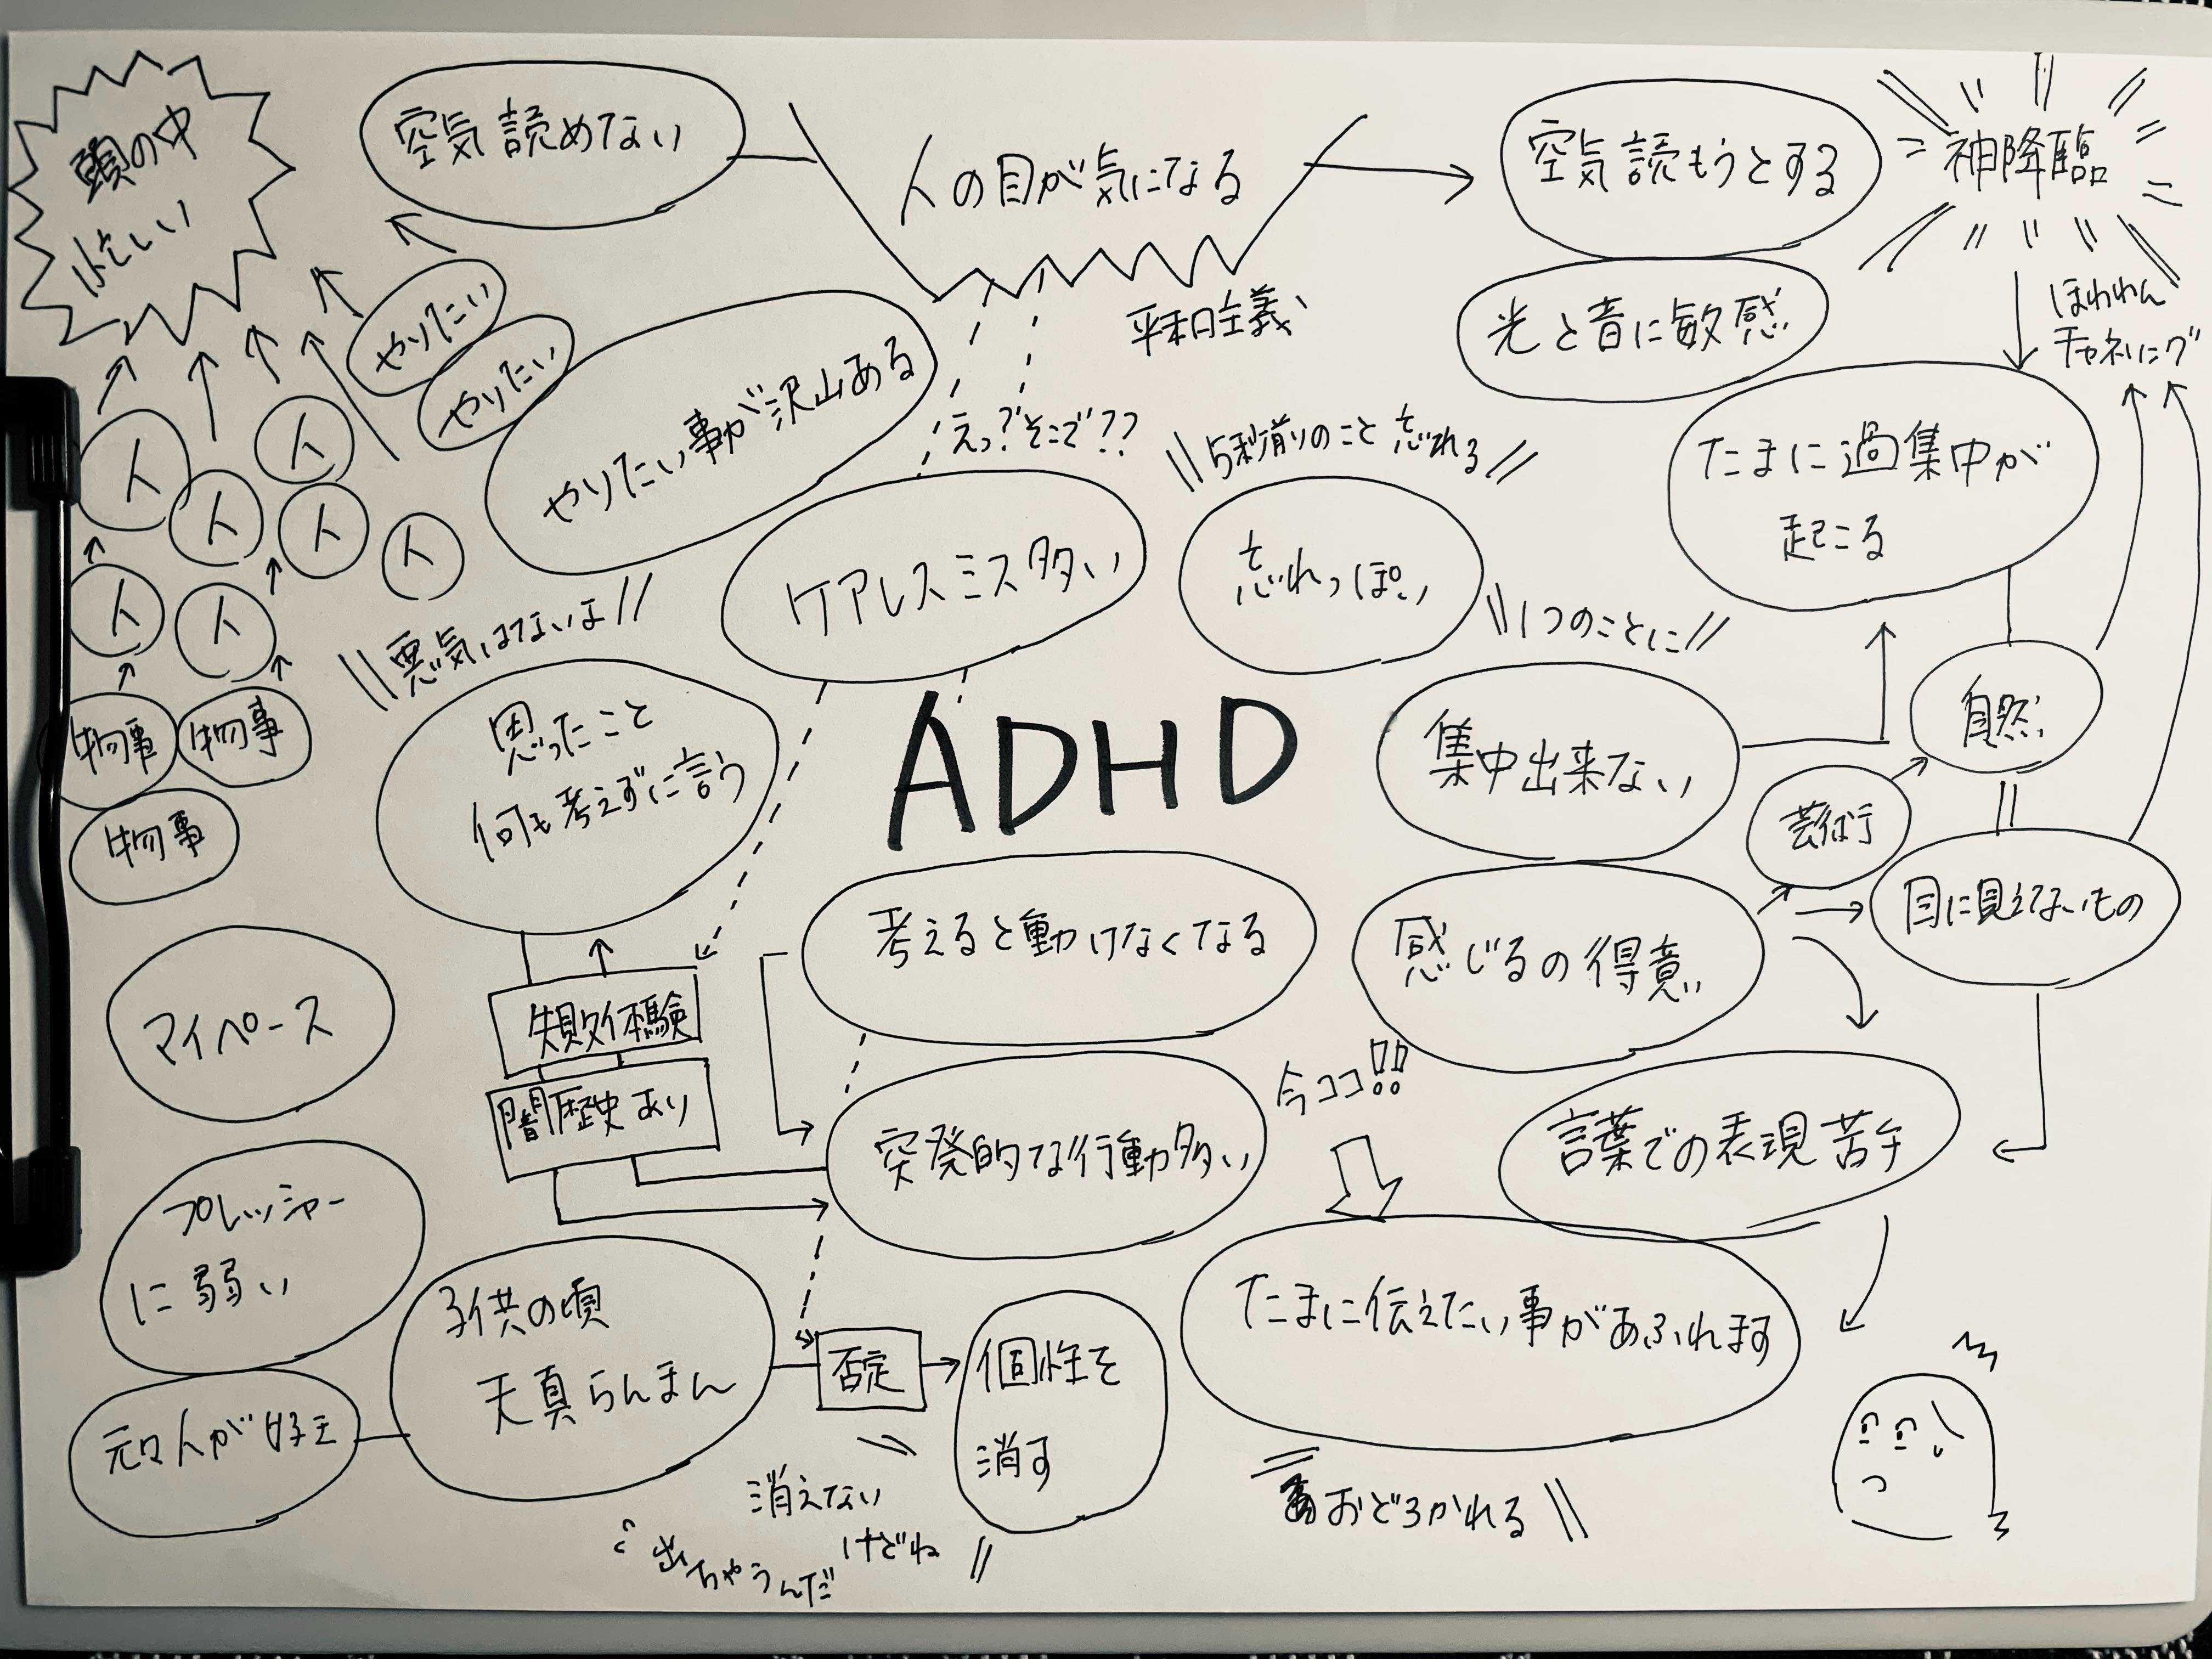 頭の中
忙しい
空気読めない
人の目が気になる
空気読もうとする
神降臨
平和主義
光と音に敏感
ほわわん
チャネリング
やりたい
やりたい
やりたい事が沢山ある
えっ?そこで??
5秒前のこと忘れる
たまに過集中が
起こる
人
人
人
人
人
人
人
悪気はないよ
ケアレスミス多い
忘れっぽい
1つのことに
物事
物事
物事
思ったこと
何も考えずに言う
ADHD
集中出来ない
自然
芸術
目に見えないもの
マイペース
失敗体験
闇歴史あり
考えると動けなくなる
感じるの得意
今ココ!!
突発的な行動多い
言葉での表現苦手
プレッシャー
に弱い
子供の頃
天真らんまん
否定
個性を
消す
たまに伝えたい事があふれます
元々人が好き
消えない
けどね
出ちゃうんだ
おどろかれる